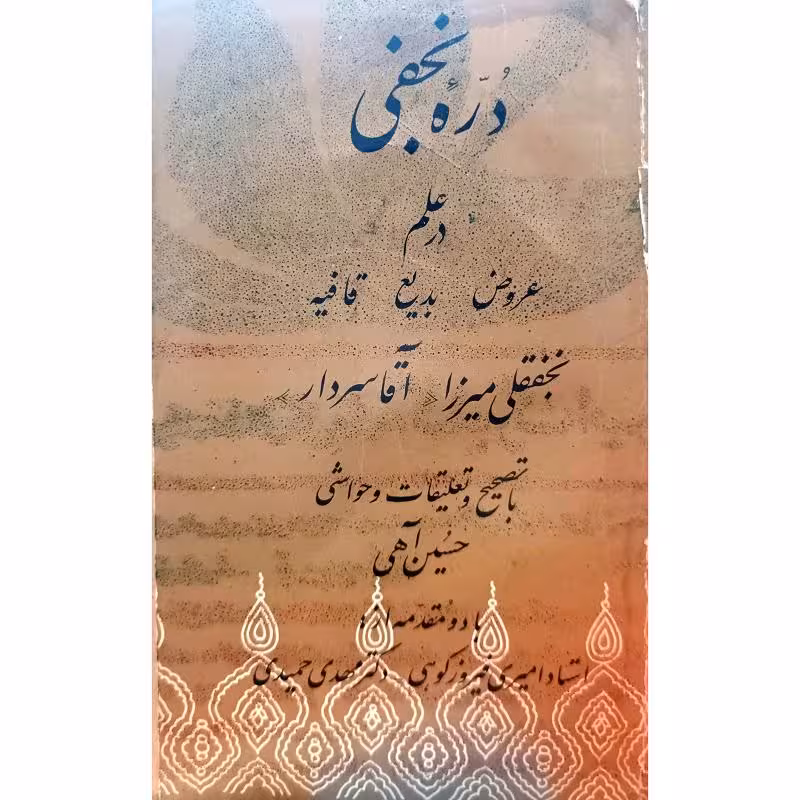 دُرّهٔ نجفی
در علم
عروض بدیع قافیه
نجفقلی میرزا «آقا سردار»
با تصحیح و تعلیقات و حواشی
حُسین آهی
با دو مُقدمه از:
استاد امیری فیروزکوهی دکتر مهدی حمیدی